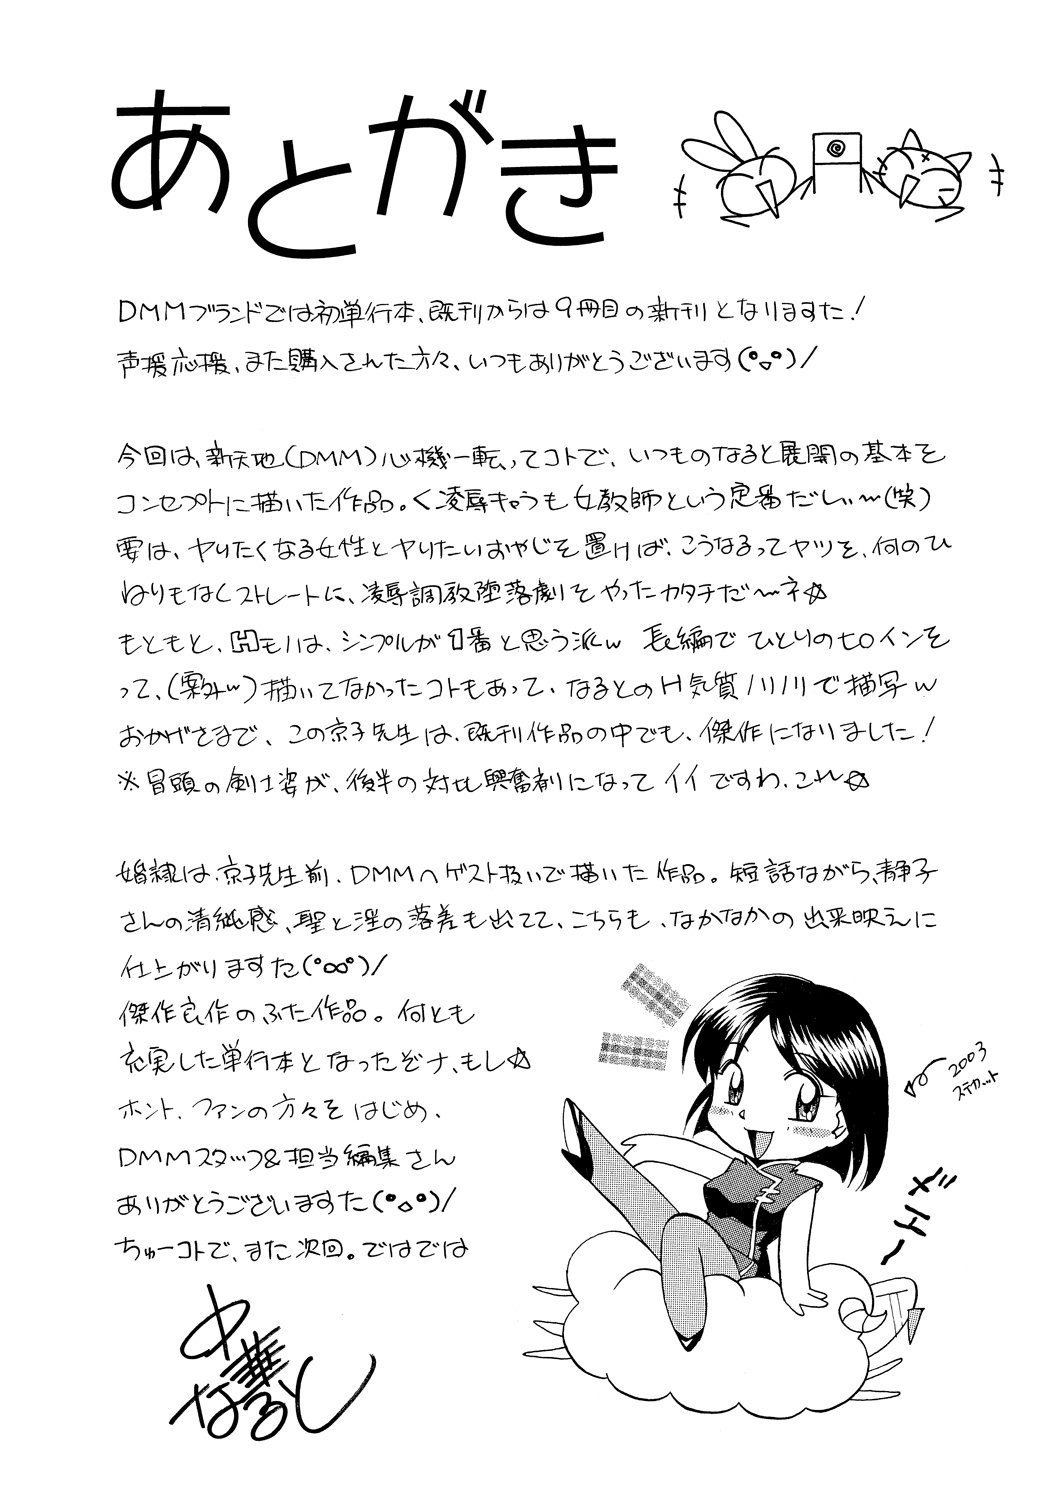 あとがき
DMMブランドでは初単行本、既刊からは9冊目の新刊となりますた!
声援応援、また購入された方々、いつもありがとうございます(°◡°)/
今回は、新天地(DMM)心機一転ってコトで、いつものなると展開の基本を
コンセプトに描いた作品。く凌辱キャラも女教師という定番だしぃ〜(笑)
要は、ヤりたくなる女性とヤりたいおやじを置けば、こうなるってヤツを、何のひ
ねりもなくストレートに、凌辱調教堕落劇をやったカタチだ〜ネ☆
もともと、Hモノは、シンプルが1番と思う派w 長編でひとりのヒロインを
って、(案外w)描いてなかったコトもあって、なるとのH気質ノリノリで描写w
おかげさまで、この京子先生は、既刊作品の中でも、傑作になりました!
※冒頭の剣士姿が、後半の対比興奮剤になってイイですわ、これ☆
婚隷は、京子先生前、DMMへゲスト扱いで描いた作品。短話ながら、静子
さんの清純感、聖と淫の落差も出てて、こちらも、なかなかの出来映えに
仕上がりますた(°∞°)/
傑作良作のふた作品。何とも
充実した単行本となったぞナ、もし☆
ホント、ファンの方々をはじめ、
DMMスタッフ&担当編集さん
ありがとうございますた(°◡°)/
ちゅーコトで、また次回。ではでは
中華なると
2003
ステカット
メエ〜